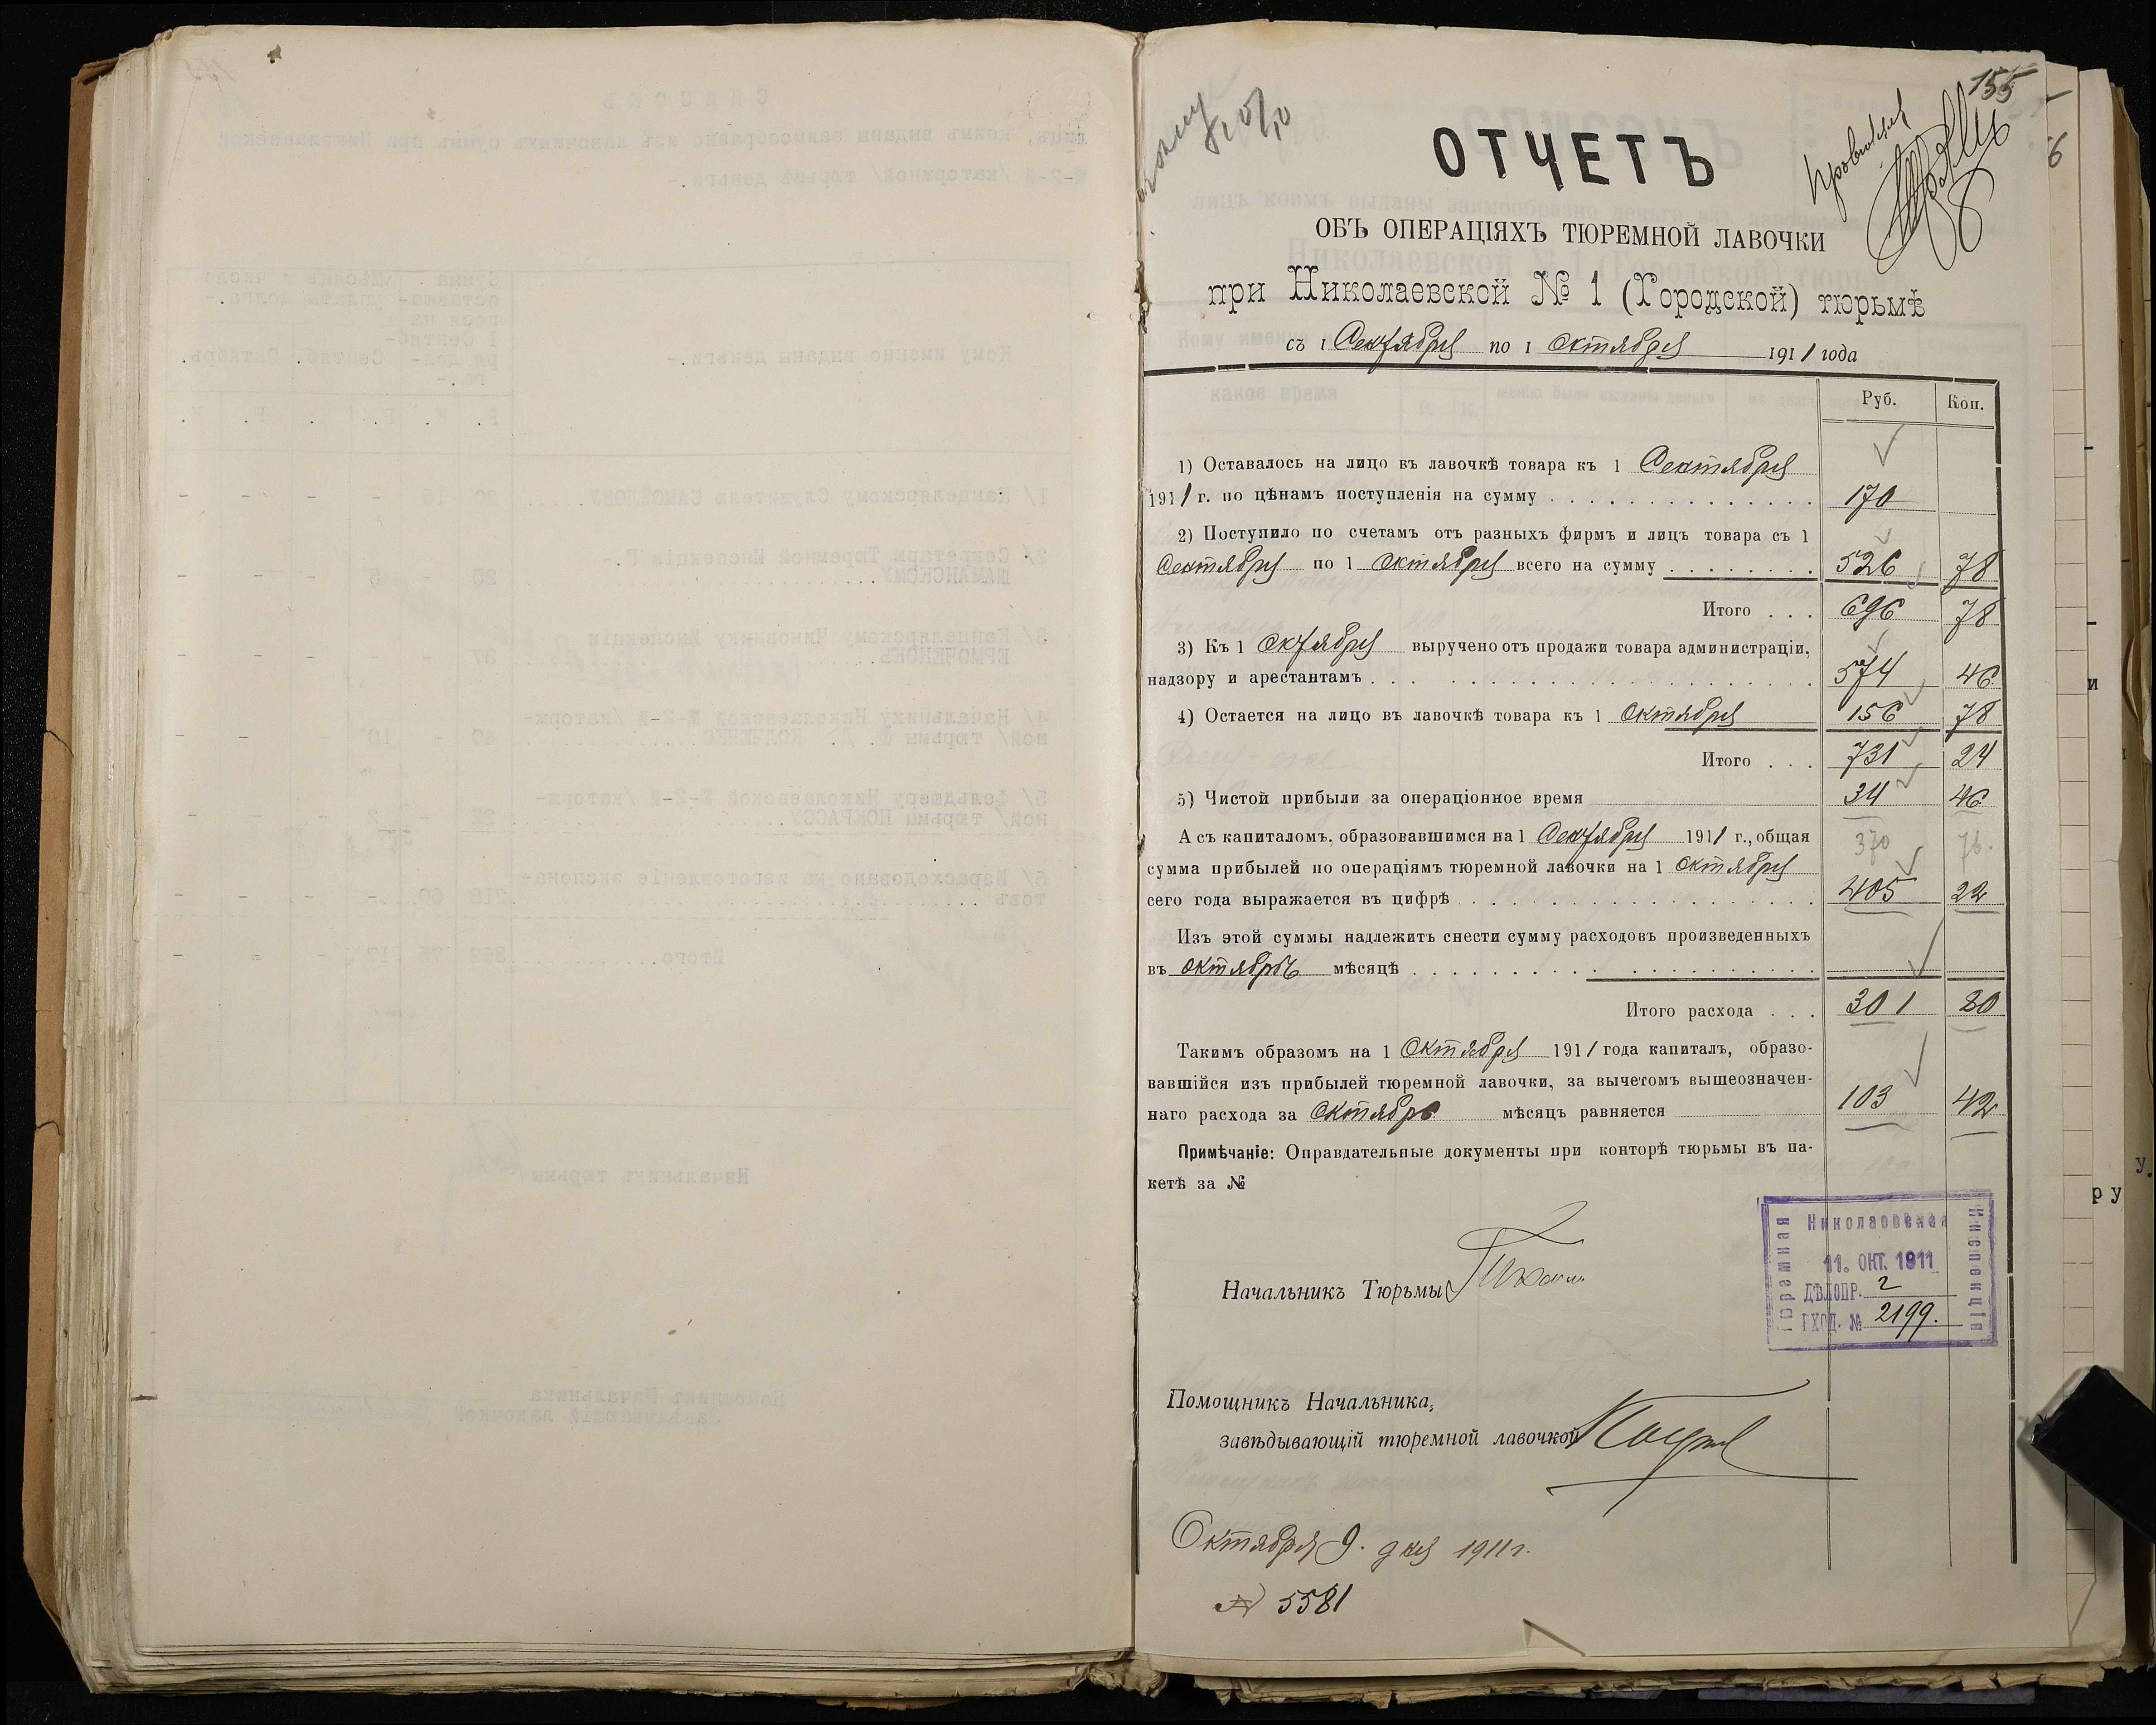 155
6
ОТЧЕТЪ
ОБЪ ОПЕРАЦІЯХЪ ТЮРЕМНОЙ ЛАВОЧКИ
при Николаевской № 1 (Городской) тюрьмѣ
съ 1 Сентября по 1 Октября 1911 года
Руб. Коп.
1) Оставалось на лицо въ лавочкѣ товара къ 1 Сентября
1911 г. по цѣнамъ поступленія на сумму . . . 170
2) Поступило по счетамъ отъ разныхъ фирмъ и лицъ товара съ 1
Сентября по 1 Октября всего на сумму . . . 526 78
Итого . . . 696 78
3) Къ 1 Октября выручено отъ продажи товара администраціи,
надзору и арестантамъ . . . 574 46
4) Остается на лицо въ лавочкѣ товара къ 1 Октября 156 78
Итого . . . 731 24
5) Чистой прибыли за операціонное время 34 46
А съ капиталомъ, образовавшимся на 1 Сентября 1911 г., общая 370 76
сумма прибылей по операціямъ тюремной лавочки на 1 Октября
сего года выражается въ цифрѣ . . . 405 22
Изъ этой суммы надлежитъ снести сумму расходовъ произведенныхъ
въ Октябрѣ мѣсяцѣ . . .
Итого расхода . . . 301 80
Такимъ образомъ на 1 Октября 1911 года капиталъ, образо-
вавшійся изъ прибылей тюремной лавочки, за вычетомъ вышеозначен-
наго расхода за Октябрь мѣсяцъ равняется 103 42
Примѣчаніе: Оправдательные документы при конторѣ тюрьмы въ па-
кетѣ за №
Николаевская
Тюремная
Инспекція
11. ОКТ. 1911
ДѢЛОПР. 2
ВХОД. № 2199.
Начальникъ Тюрьмы
Помощникъ Начальника,
завѣдывающій тюремной лавочкой
Октября 9. дня 1911 г.
№ 5581